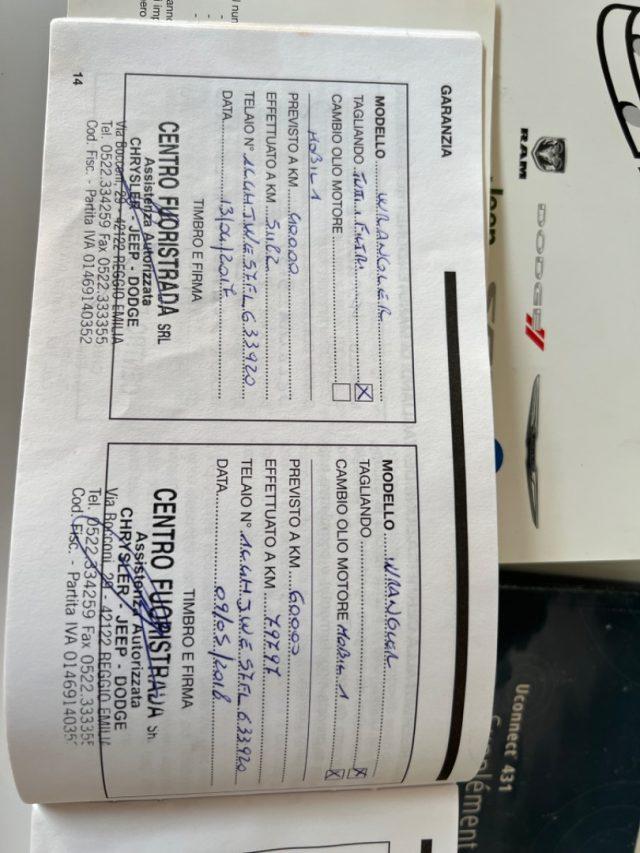 GARANZIA
MODELLO WRANGLER
TAGLIANDO TUTTI I FILTRI X
CAMBIO OLIO MOTORE
MOBIL 1
PREVISTO A KM 40000
EFFETTUATO A KM 51122
TELAIO N° 1C4HJWE57FL633920
DATA 13/04/2017
TIMBRO E FIRMA
CENTRO FUORISTRADA SRL
Assistenza Autorizzata
CHRYSLER - JEEP - DODGE
Via Bocconi, 29 - 42122 REGGIO EMILIA
Tel. 0522.334259 Fax 0522.333355
Cod. Fisc. - Partita IVA 01469140352
14
MODELLO WRANGLER
TAGLIANDO X
CAMBIO OLIO MOTORE MOBIL 1 X
PREVISTO A KM 60000
EFFETTUATO A KM 79797
TELAIO N° 1C4HJWE57FL633920
DATA 09/05/2018
TIMBRO E FIRMA
CENTRO FUORISTRADA Srl
Assistenza Autorizzata
CHRYSLER - JEEP - DODGE
Via Bocconi, 29 - 42122 REGGIO EMILIA
Tel. 0522.334259 Fax 0522.333355
Cod. Fisc. - Partita IVA 0146914035
RAM
DODGE
Jeep
Uconnect 431